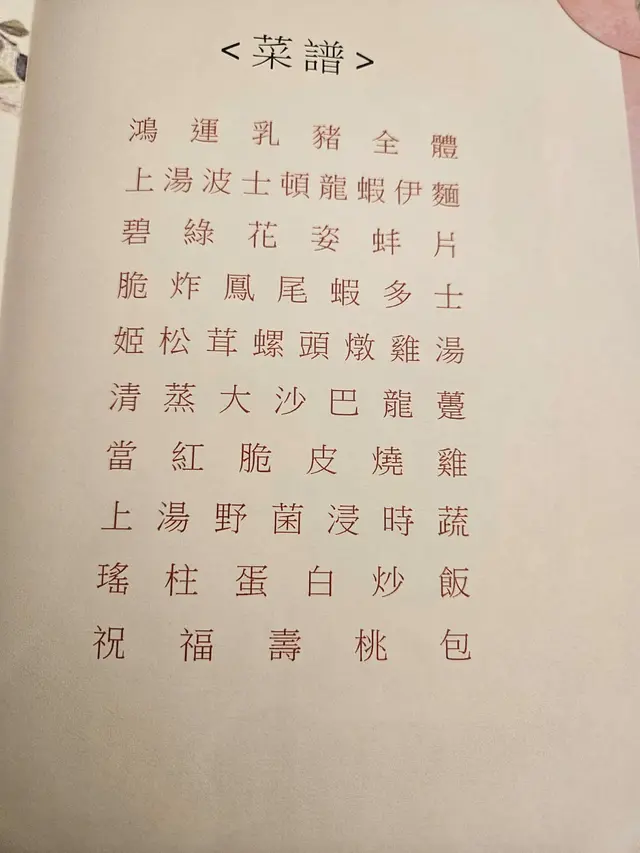 <菜譜>
鴻運乳豬全體
上湯波士頓龍蝦伊麵
碧綠花姿蚌片
脆炸鳳尾蝦多士
姬松茸螺頭燉雞湯
清蒸大沙巴龍躉
當紅脆皮燒雞
上湯野菌浸時蔬
瑤柱蛋白炒飯
祝福壽桃包